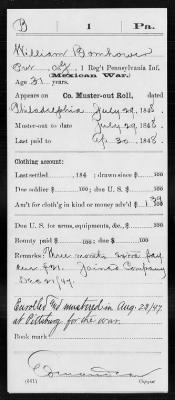 B 1 Pa.
William Bomhower
Pvt, Co. , 1 Reg't Pennsylvania Inf.
(Mexican War.)
Age 31 years.
Appears on Co. Muster-out Roll, dated
Philadelphia July 29, 1848.
Muster-out to date July 29, 1848.
Last paid to Apr. 30, 1848.
Clothing account:
Last settled , 184 ; drawn since $ 100
Due soldier $ 100; due U. S. $ 100
Am't for cloth'g in kind or money adv'd $ 1 39/100
Due U. S. for arms, equipments, &c., $ 100
Bounty paid $ 100; due $ 100
Remarks: Three months extra pay
due $21. Joined Company
Dec 31/47.
Enrolled and mustered in Aug. 28/47
at Pittsburg for the war.
Book mark:
(641) Copyist.